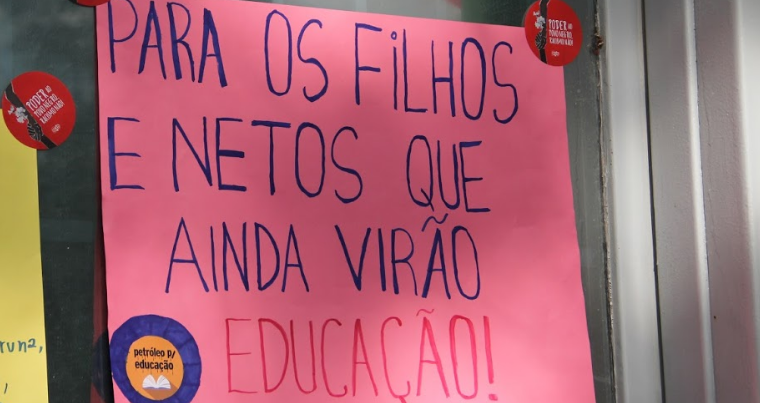 PARA OS FILHOS
E NETOS QUE
AINDA VIRÃO
EDUCAÇÃO!
petróleo p/
educação
PODER AO
PODER AO